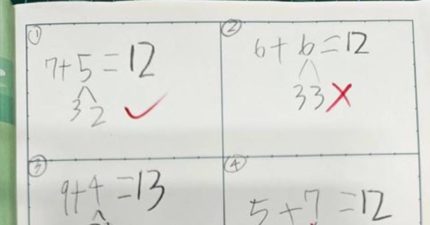 ①
7+5=12
3 2
②
6+6=12
3 3
③
9+4=13
④
5+7=12